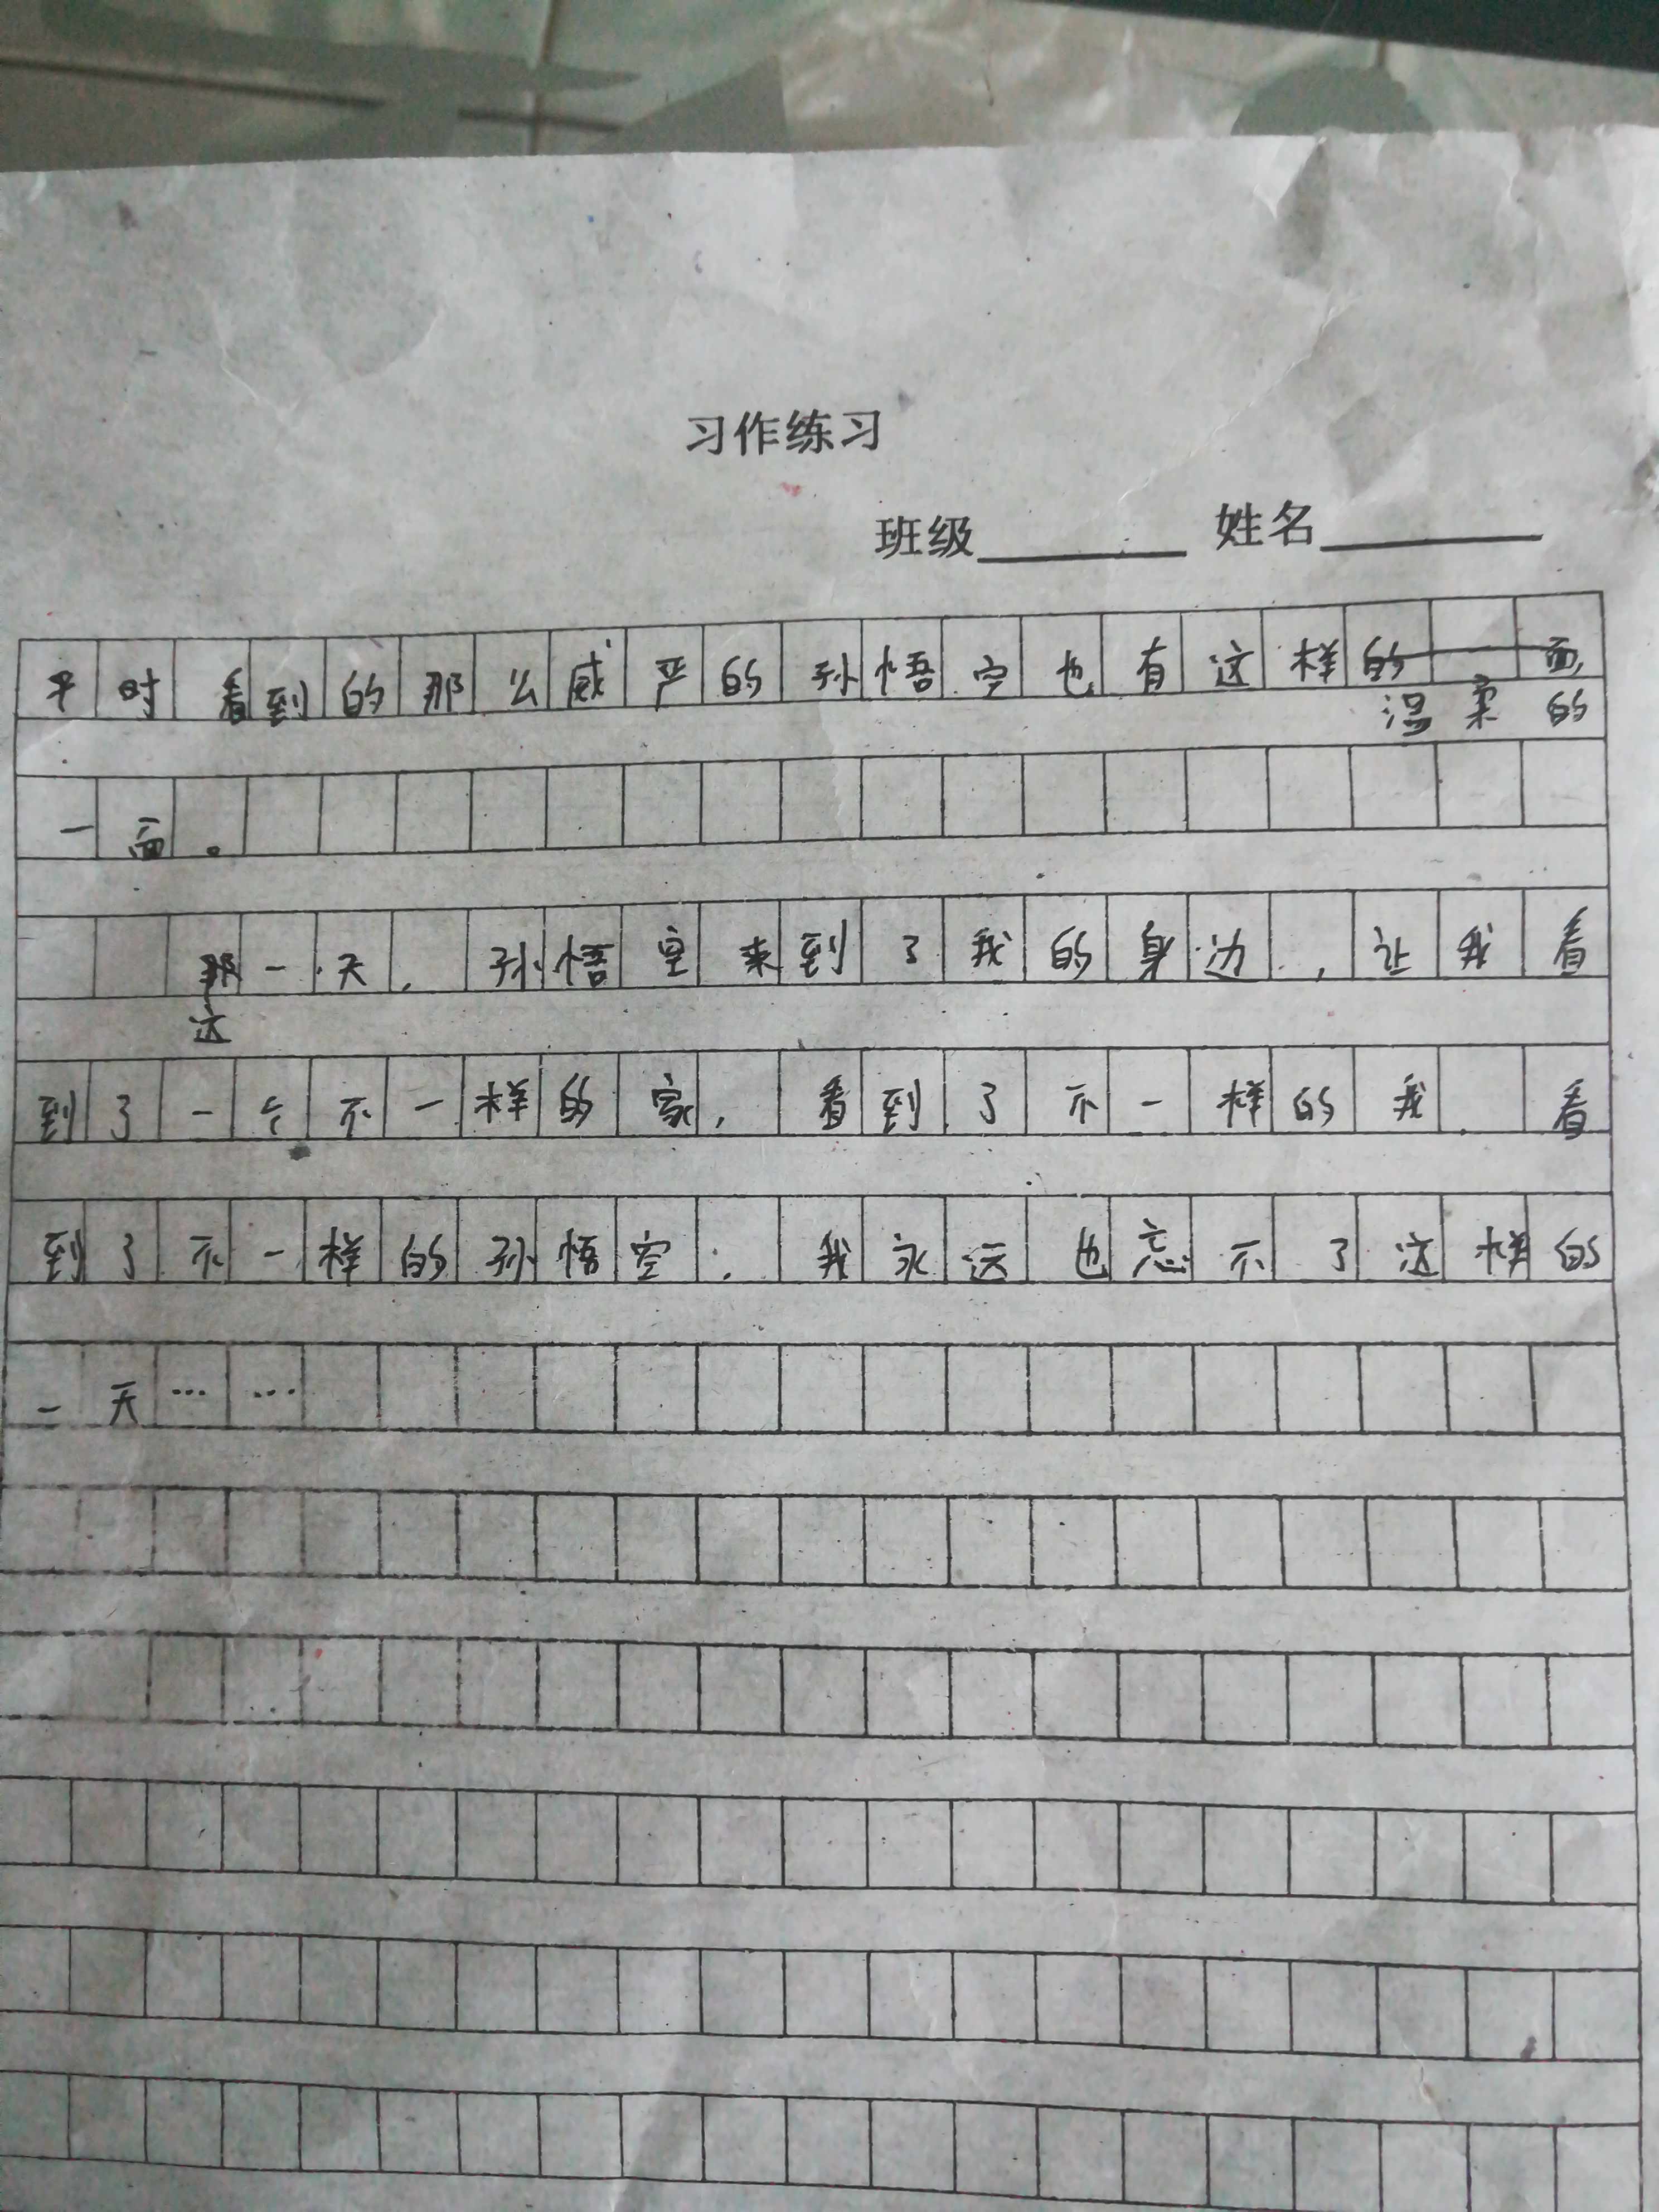 习作练习
班级 姓名
平时看到的那么威严的孙悟空也有这样的一面,
温柔的
一面。
那一天,孙悟空来到了我的身边,让我看
这
到了一个不一样的家,看到了不一样的我.看
到了不一样的孙悟空.我永远也忘不了这样的
一天……